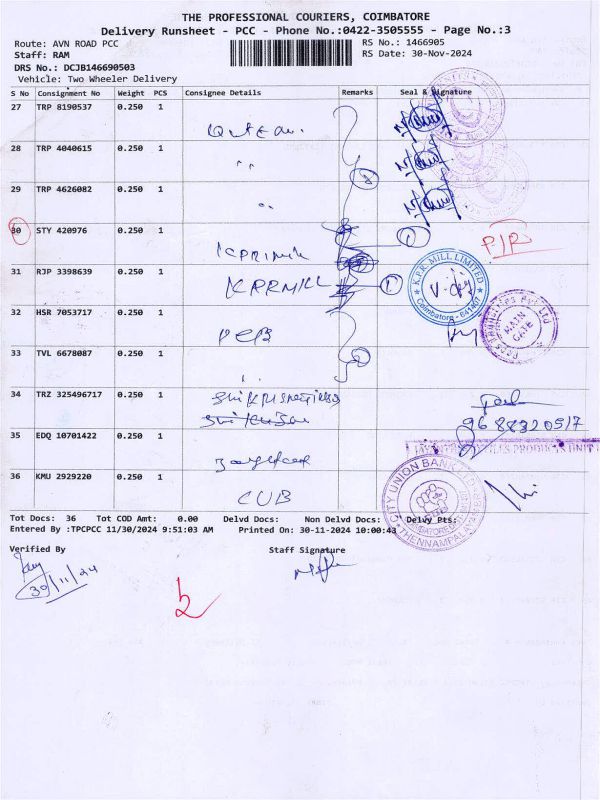 THE PROFESSIONAL COURIERS, COIMBATORE
Delivery Runsheet - PCC - Phone No.:0422-3505555 - Page No.:3
Route: AVN ROAD PCC
Staff: RAM
DRS No.: DCJB146690503
Vehicle: Two Wheeler Delivery
RS No.: 1466905
RS Date: 30-Nov-2024
S No Consignment No Weight PCS Consignee Details Remarks Seal & Signature
27 TRP 8190537 0.250 1
28 TRP 4040615 0.250 1
"
29 TRP 4626082 0.250 1
"
30 STY 420976 0.250 1
KPRMILL
P/R
31 RJP 3398639 0.250 1
KPRMILL
K.P.R. MILL LIMITED
Coimbatore - 641407
32 HSR 7053717 0.250 1
PCB
MAIN GATE
33 TVL 6678087 0.250 1
34 TRZ 325496717 0.250 1
9688320517
35 EDQ 10701422 0.250 1
36 KMU 2929220 0.250 1
CUB
CITY UNION BANK
Tot Docs: 36 Tot COD Amt: 0.00 Delvd Docs: Non Delvd Docs: Delvy Pts:
Entered By :TPCPCC 11/30/2024 9:51:03 AM Printed On: 30-11-2024 10:00:43
Verified By Staff Signature
30/11/24